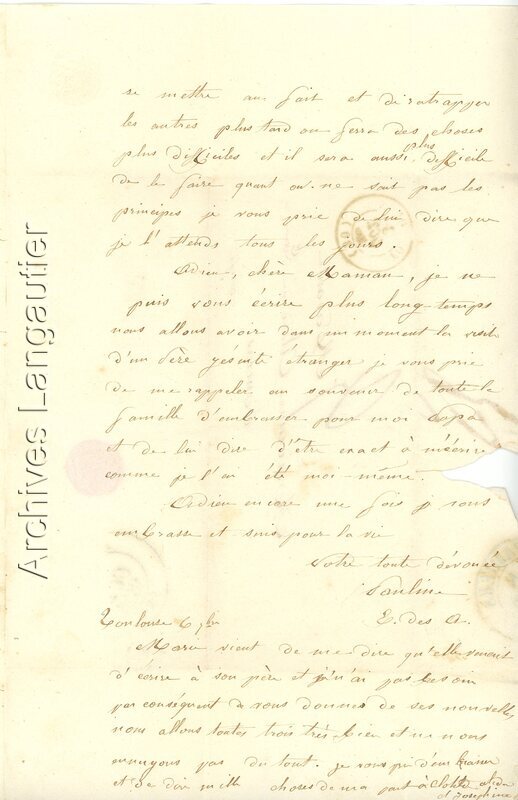 se mettre au fait et de ratrapper
les autres plus tard on ferra des choses
plus difficiles et il sera aussi plus difficile
de le faire quant on ne sait pas les
principes je vous prie de lui dire que
je l'attends tous les jours.
Adieu, chère Maman, je ne
puis vous écrire plus long-temps
nous allons avoir dans un moment la visite
d'un Père jésuite étranger je vous prie
de me rappeler au souvenir de toute la
famille d'embrasser pour moi Papa
et de lui dire d'être exact à m'écrire
comme je l'ai été moi-même.
Adieu encore une fois je vous
embrasse et suis pour la vie
Votre toute dévouée
Pauline
E. des A.
Toulouse 6
Marie vient de me dire qu'elle venait
d'écrire à son père et je n'ai pas besoin
par conséquent de vous donner de ses nouvelles
nous allons toutes trois très-bien et ne nous
ennuyons pas du tout. je vous prie d'embrasser
et de dire mille choses de ma part à
et Joséphine
Archives Langautier